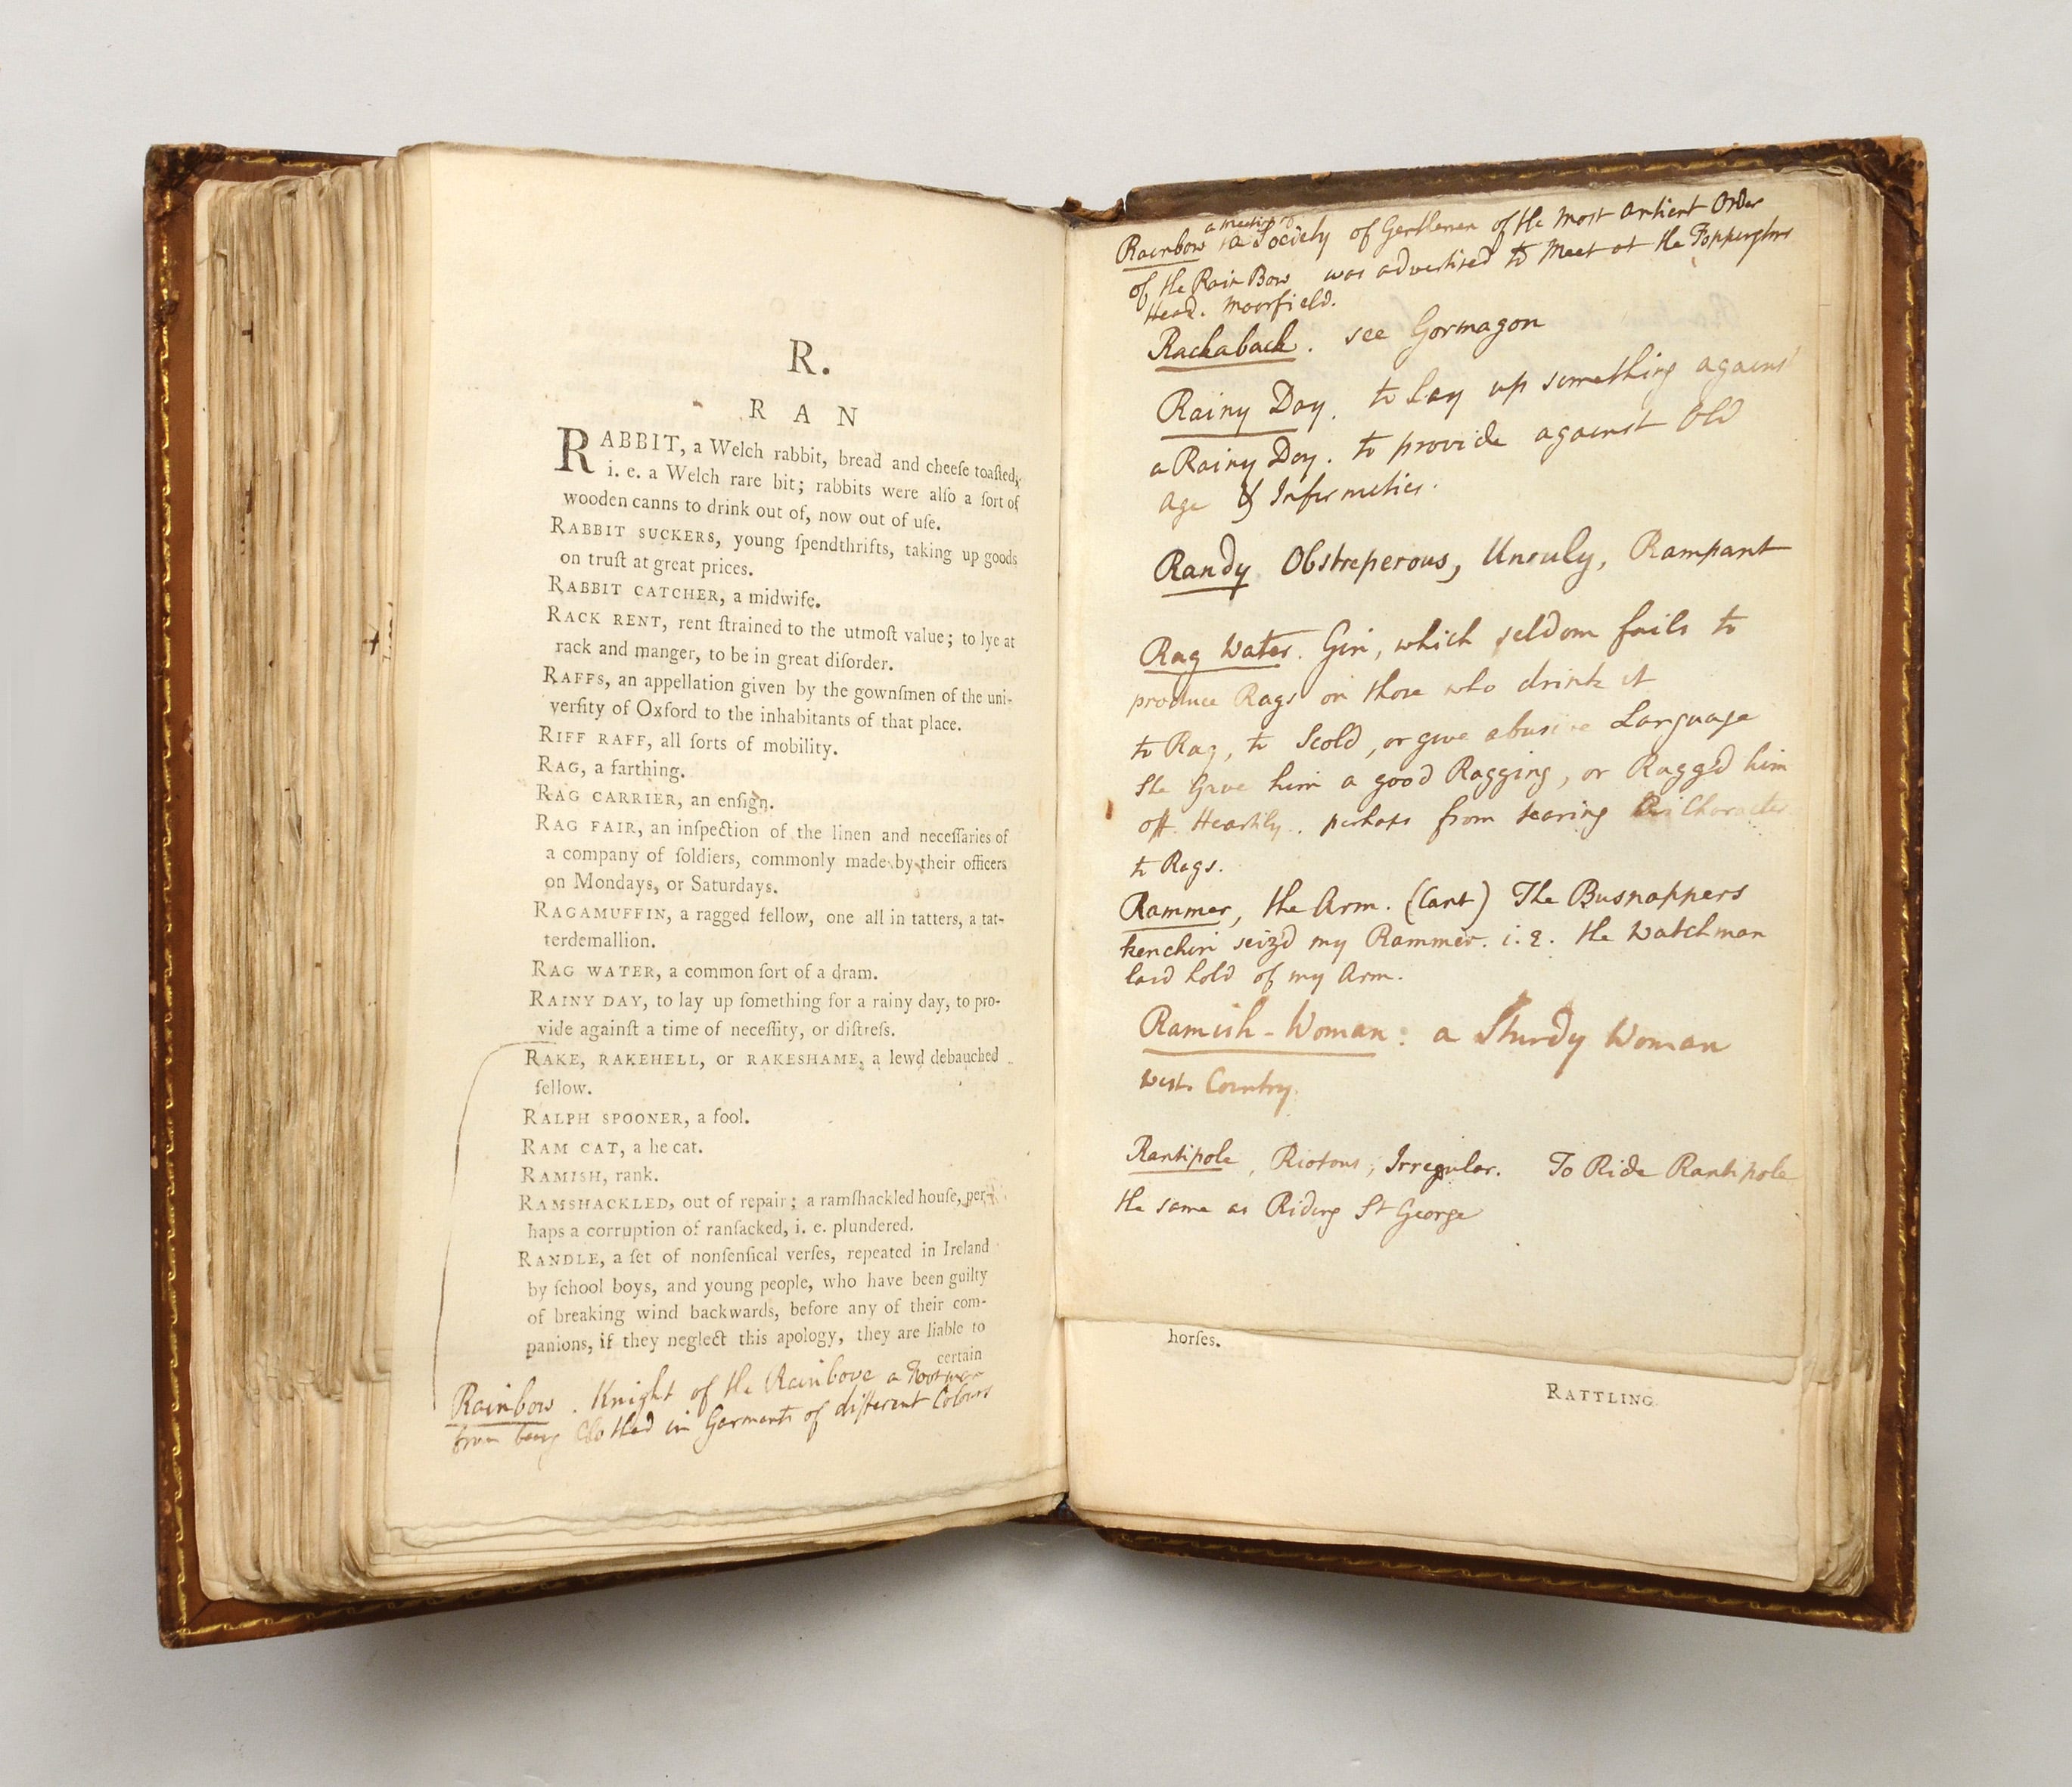 R.
R A N
RABBIT, a Welch rabbit, bread and cheeſe toaſted,
i. e. a Welch rare bit; rabbits were alſo a ſort of
wooden canns to drink out of, now out of uſe.
RABBIT SUCKERS, young ſpendthrifts, taking up goods
on truſt at great prices.
RABBIT CATCHER, a midwife.
RACK RENT, rent ſtrained to the utmoſt value; to lye at
rack and manger, to be in great diſorder.
RAFFS, an appellation given by the gownſmen of the uni-
verſity of Oxford to the inhabitants of that place.
RIFF RAFF, all ſorts of mobility.
RAG, a farthing.
RAG CARRIER, an enſign.
RAG FAIR, an inſpection of the linen and neceſſaries of
a company of ſoldiers, commonly made by their officers
on Mondays, or Saturdays.
RAGAMUFFIN, a ragged fellow, one all in tatters, a tat-
terdemallion.
RAG WATER, a common ſort of a dram.
RAINY DAY, to lay up ſomething for a rainy day, to pro-
vide againſt a time of neceſſity, or diſtreſs.
RAKE, RAKEHELL, or RAKESHAME, a lewd debauched
fellow.
RALPH SPOONER, a fool.
RAM CAT, a he cat.
RAMISH, rank.
RAMSHACKLED, out of repair; a ramſhackled houſe, per-
haps a corruption of ranſacked, i. e. plundered.
RANDLE, a ſet of nonſenſical verſes, repeated in Ireland
by ſchool boys, and young people, who have been guilty
of breaking wind backwards, before any of their com-
panions, if they neglect this apology, they are liable to
certain
Rainbow. Knight of the Rainbove a Footman
from being Clothed in Garments of different Colours
a meeting of
Rainbow a Society of Gentlemen of the Most Antient Order
of the Rain Bow was advertised to Meet at the Foppingtons
Head. Moorfield.
Rackaback. see Gormagon
Rainy Day. to Lay up something against
a Rainy Day. to provide against Old
Age & Infirmities.
Randy Obstreperous, Unruly, Rampant
Rag Water. Gin, which seldom fails to
produce Rags on those who drink it
to Rag, to Scold, or give abusive Language
She Gave him a good Ragging, or Ragg'd him
off Heartily. perhaps from tearing his Character
to Rags.
Rammer, the Arm. (Cant) The Busnappers
kenchin seiz'd my Rammer. i. e. the Watchman
laid hold of my Arm.
Ramish-Woman: a Sturdy Woman
West Country.
Rantipole, Riotous, Irregular. To Ride Rantipole
the same as Riding St George
horſes.
RATTLING